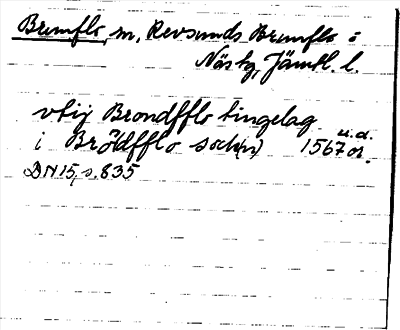 Brunflo, m, Revsunds, Brunflo i
Näs tg, Jämtl. l.
vtij Brondfflo tingelag
i Bröldfflo sock(n) 1567 or.
u.d.
DN 15, s. 835